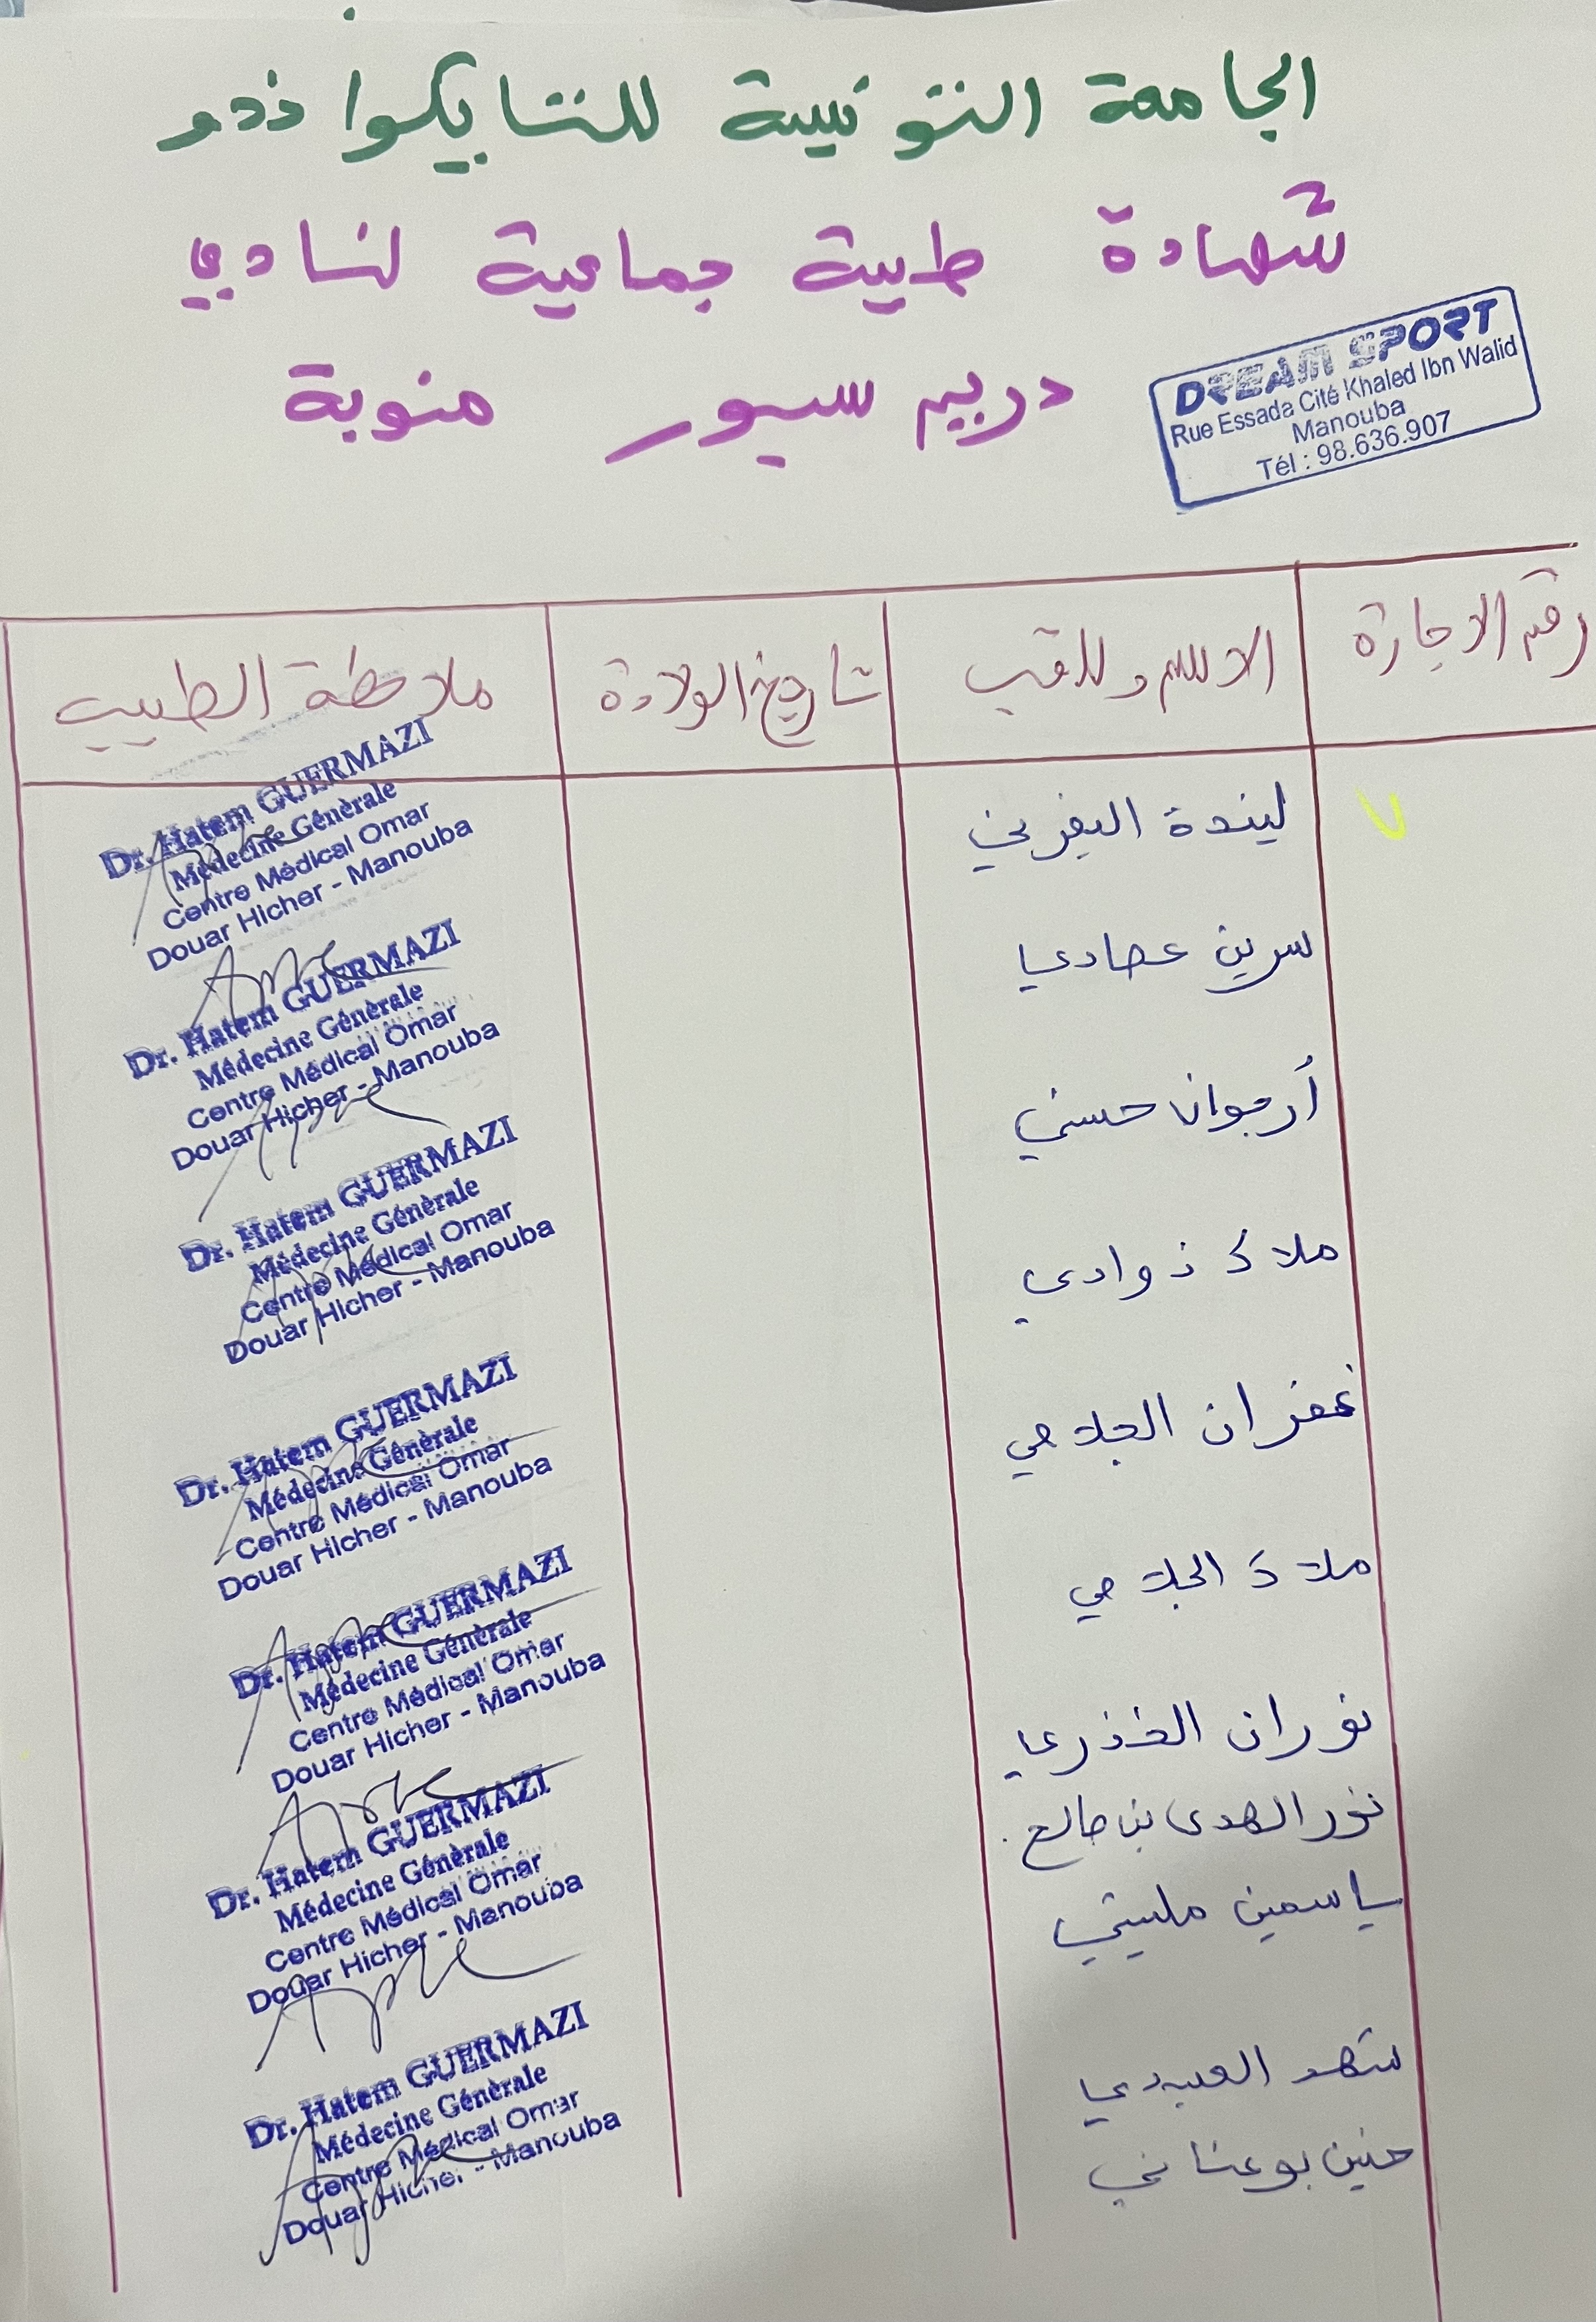 الجامعة التونسية للتايكواندو
شهادة طبية جماعية لنادي
دريم سبور منوبة
DREAM SPORT
Rue Essada Cité Khaled Ibn Walid
Manouba
Tél : 98.636.907
رقم الاجازة
الاسم وللقب
تاريخ الولادة
ملاحظة الطبيب
ليندة اليفرني
سرين عصادي
أرجوان حسني
ملاك ذوادي
غفران الجلاصي
ملاك الجلاصي
نوران الخذري
نور الهدى بن صالح
ياسمين مليتي
شهد العبيدي
حنين بوعناني
Dr. Hatem GUERMAZI
Médecine Générale
Centre Médical Omar
Douar Hicher - Manouba
Dr. Hatem GUERMAZI
Médecine Générale
Centre Médical Omar
Douar Hicher - Manouba
Dr. Hatem GUERMAZI
Médecine Générale
Centre Médical Omar
Douar Hicher - Manouba
Dr. Hatem GUERMAZI
Médecine Générale
Centre Médical Omar
Douar Hicher - Manouba
Dr. Hatem GUERMAZI
Médecine Générale
Centre Médical Omar
Douar Hicher - Manouba
Dr. Hatem GUERMAZI
Médecine Générale
Centre Médical Omar
Douar Hicher - Manouba
Dr. Hatem GUERMAZI
Médecine Générale
Centre Médical Omar
Douar Hicher - Manouba